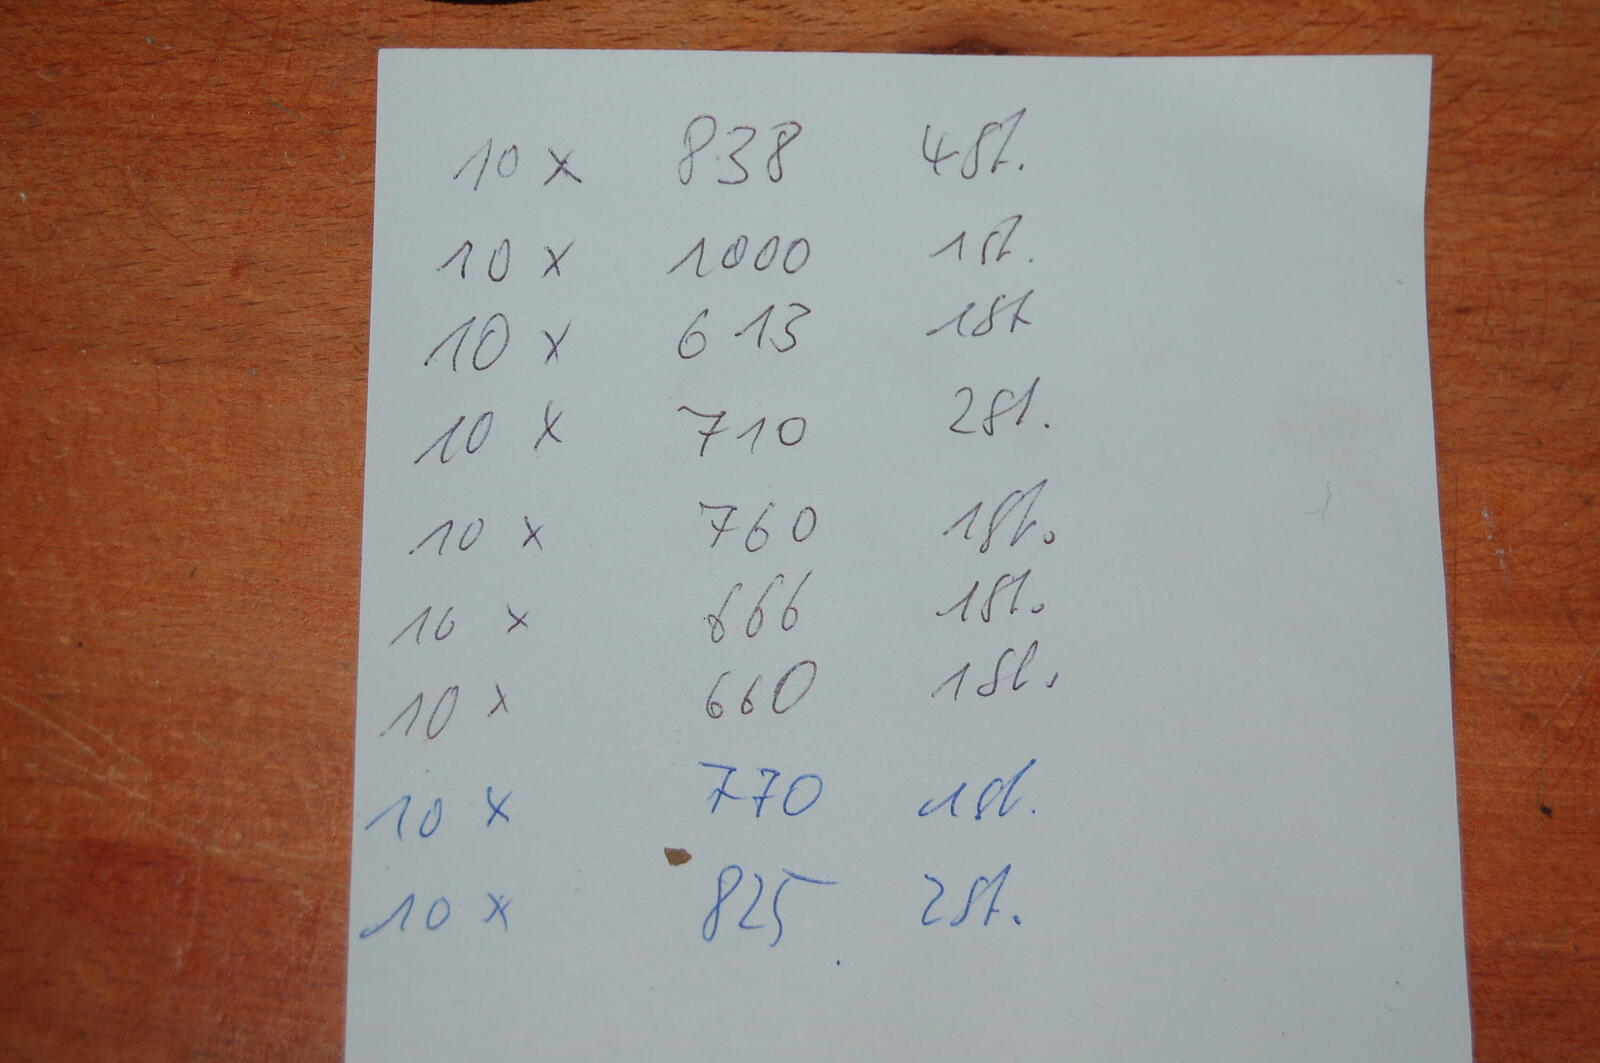 10 x 838 4St.
10 x 1000 1St.
10 x 613 1St
10 x 710 2St.
10 x 760 1St.
10 x 666 1St.
10 x 660 1St.
10 x 770 1St.
10 x 825 2St.